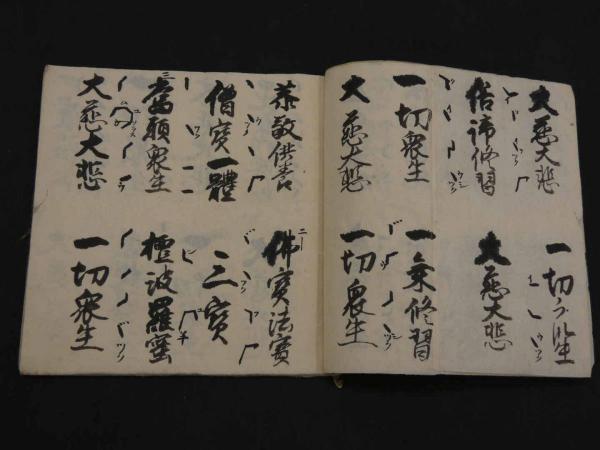 大慈大悲 一切衆生
俗諦修習 大慈大悲
一切衆生 一乗修習
大慈大悲 一切衆生
恭敬供養 佛寶法寶
僧寶一體 三寶
當願衆生 檀波羅蜜
大慈大悲 一切衆生